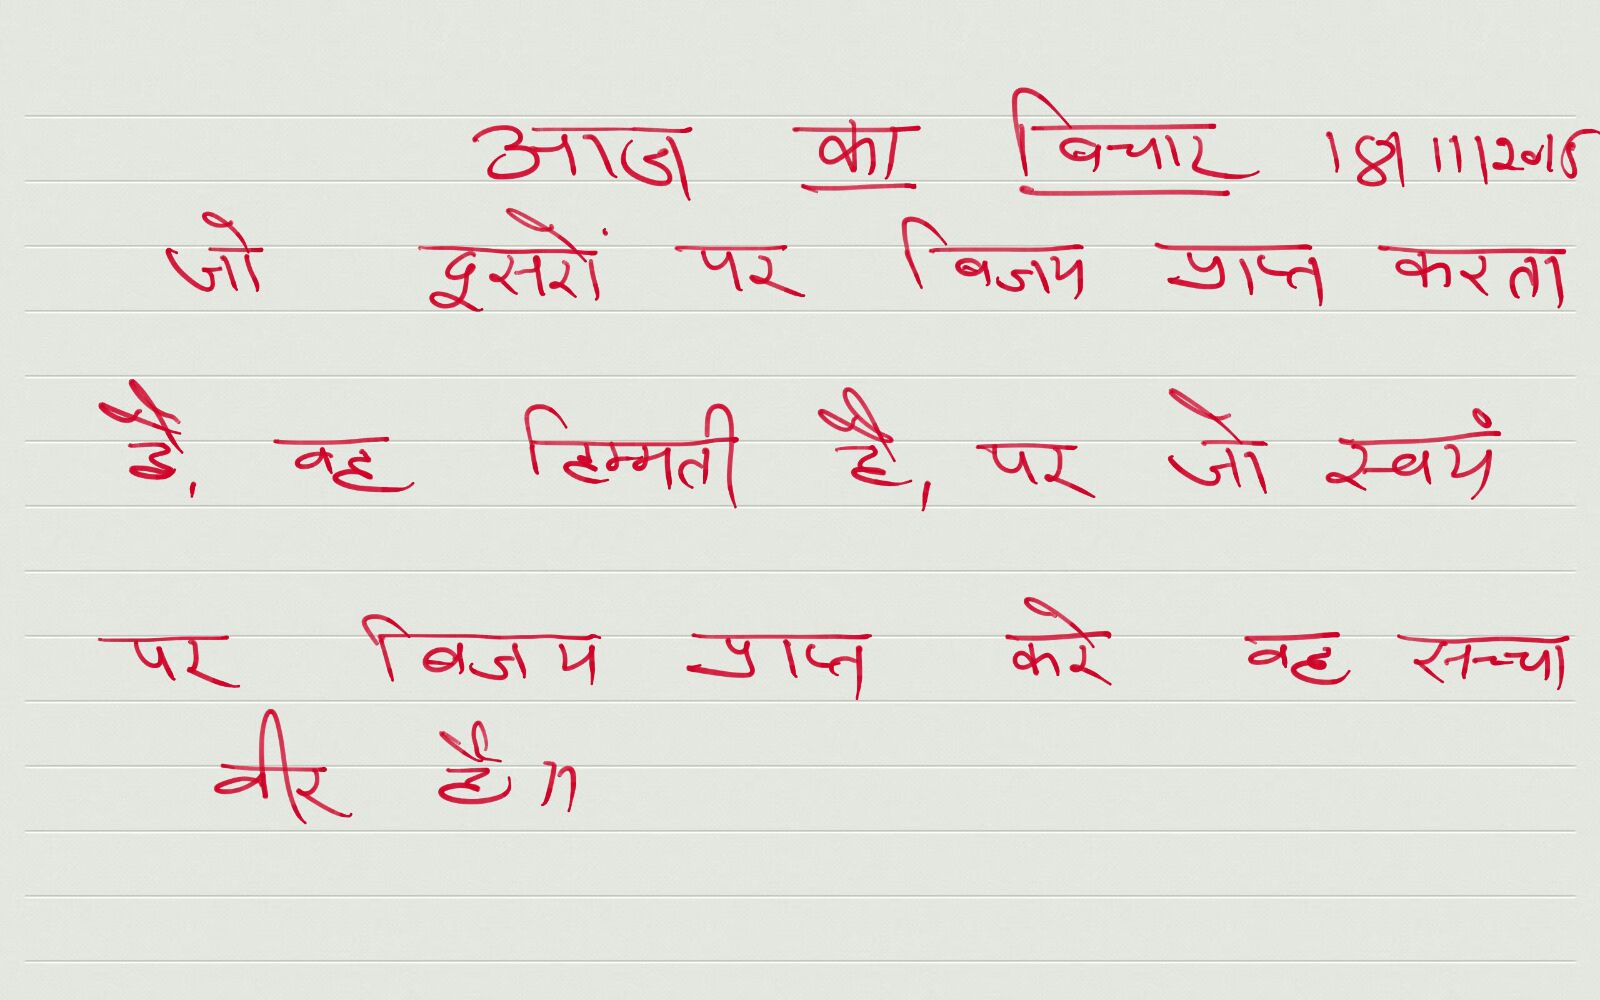 आज का विचार 18/11/2016
जो दूसरों पर विजय प्राप्त करता
है, वह हिम्मती है, पर जो स्वयं
पर विजय प्राप्त करे वह सच्चा
वीर है॥